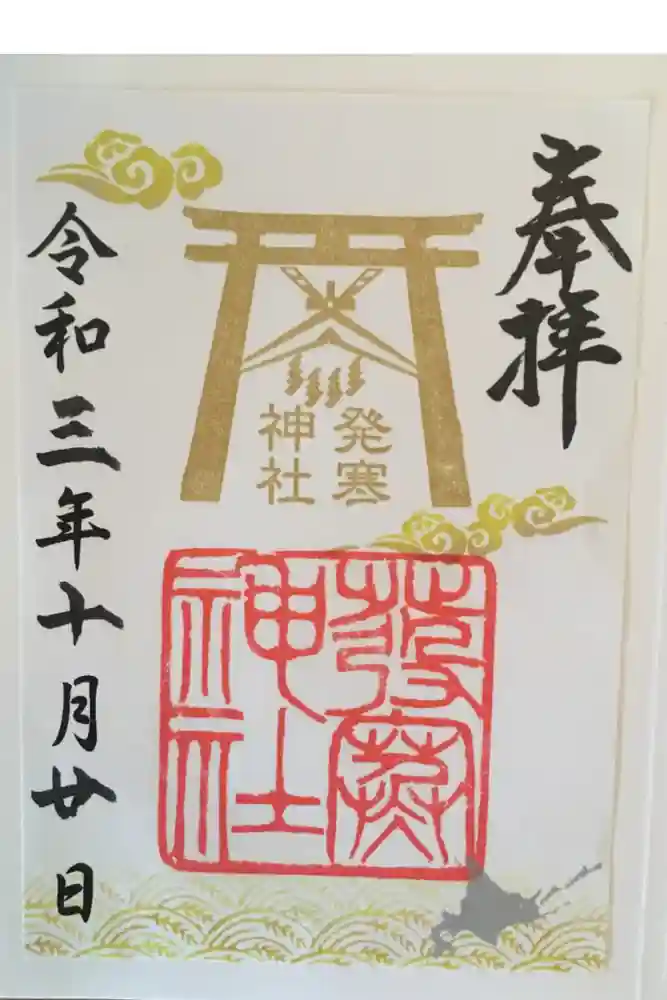 奉拝
発寒
神社
發寒
神社
令和三年十月廿日